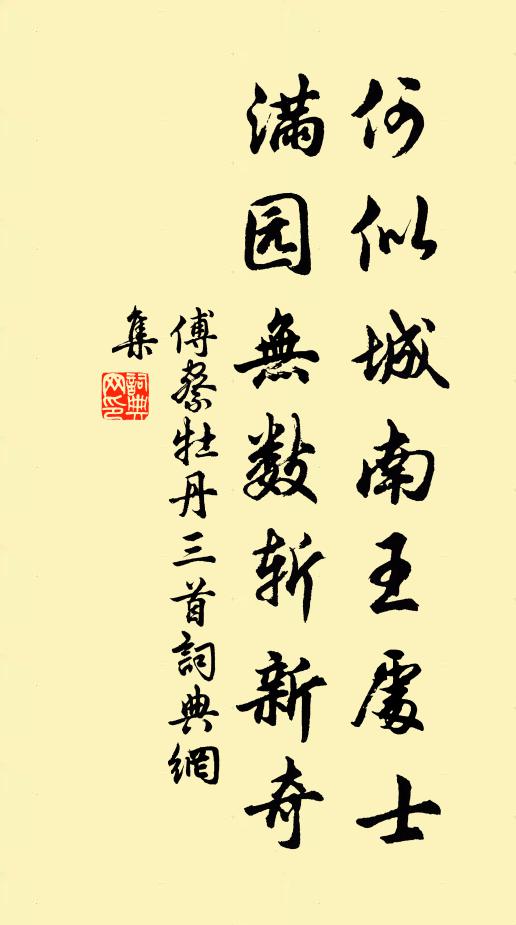 何似城南王處士
满园無数斩新奇
傅察牡丹三首詞典網
集
詞典
网印